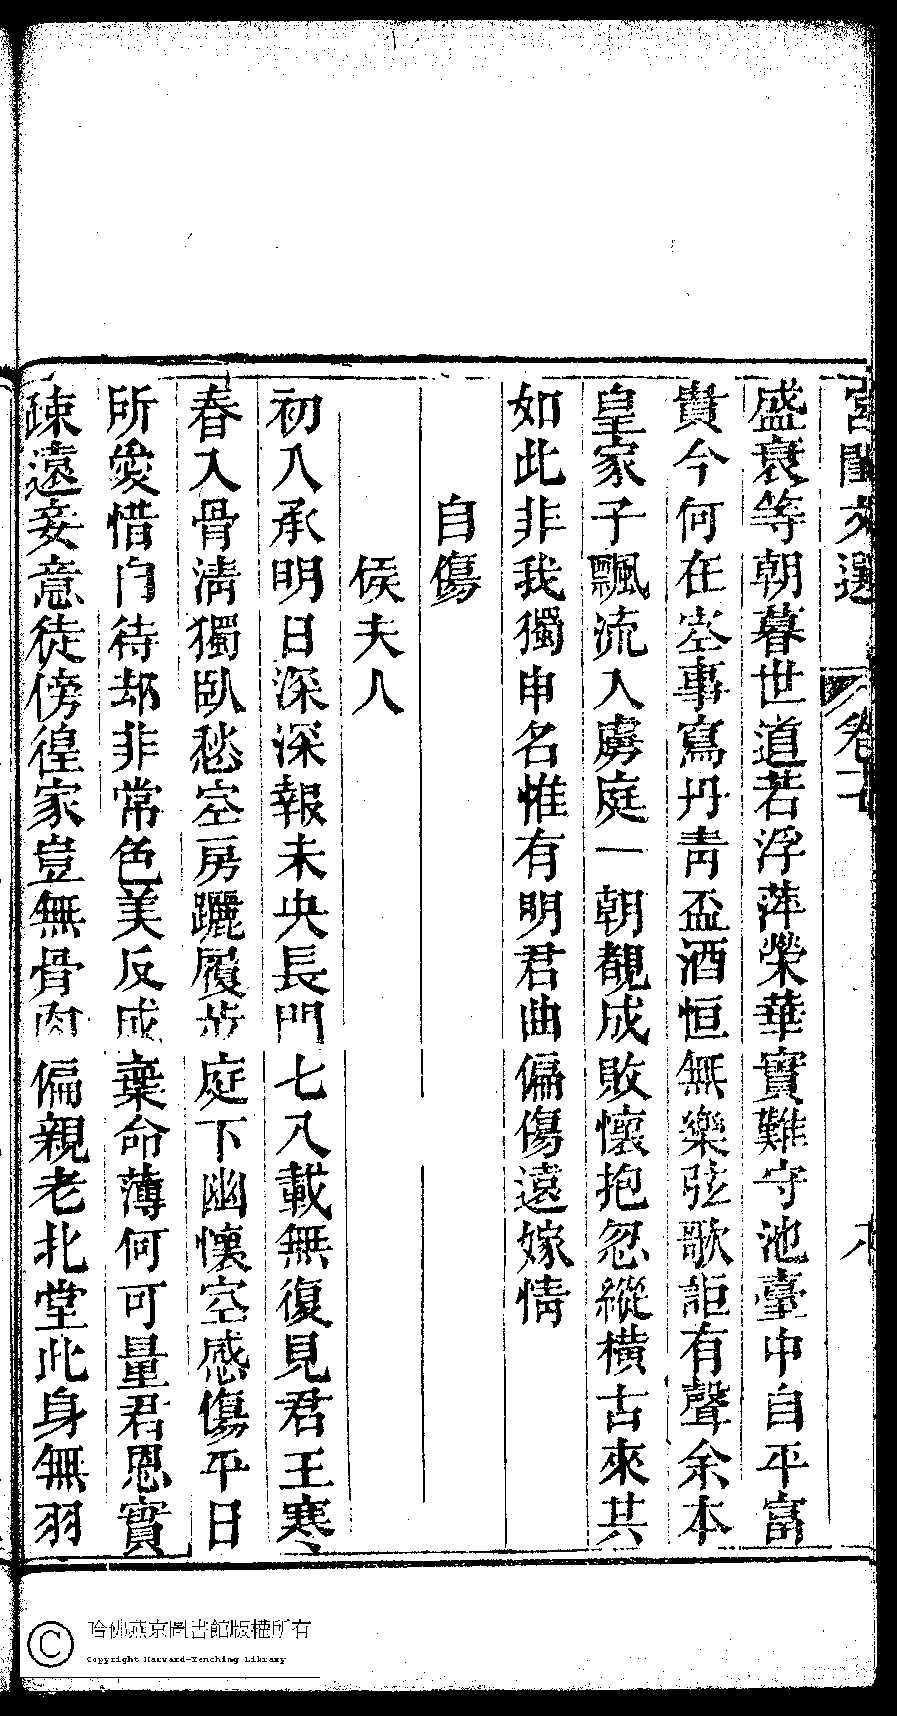 宮閨文選 卷十 六
盛衰等朝暮世道若浮萍榮華實難守池臺中自平富
貴今何在空事寫丹青盃酒恒無樂弦歌詎有聲余本
皇家子飄流入虜庭一朝覩成敗懷抱忽縱橫古來共
如此非我獨申名惟有明君曲偏傷遠嫁情
自傷
侯夫人
初入承明日深深報未央長門七八載無復見君王寒
春入骨淸獨臥愁空房䠧履步庭下幽懷空感傷平日
所愛惜自待却非常色美反成棄命薄何可量君恩實
疎遠妾意徒傍徨家豈無骨肉偏親老北堂此身無羽
哈佛燕京圖書館版權所有
Copyright Harvard-Yenching Library